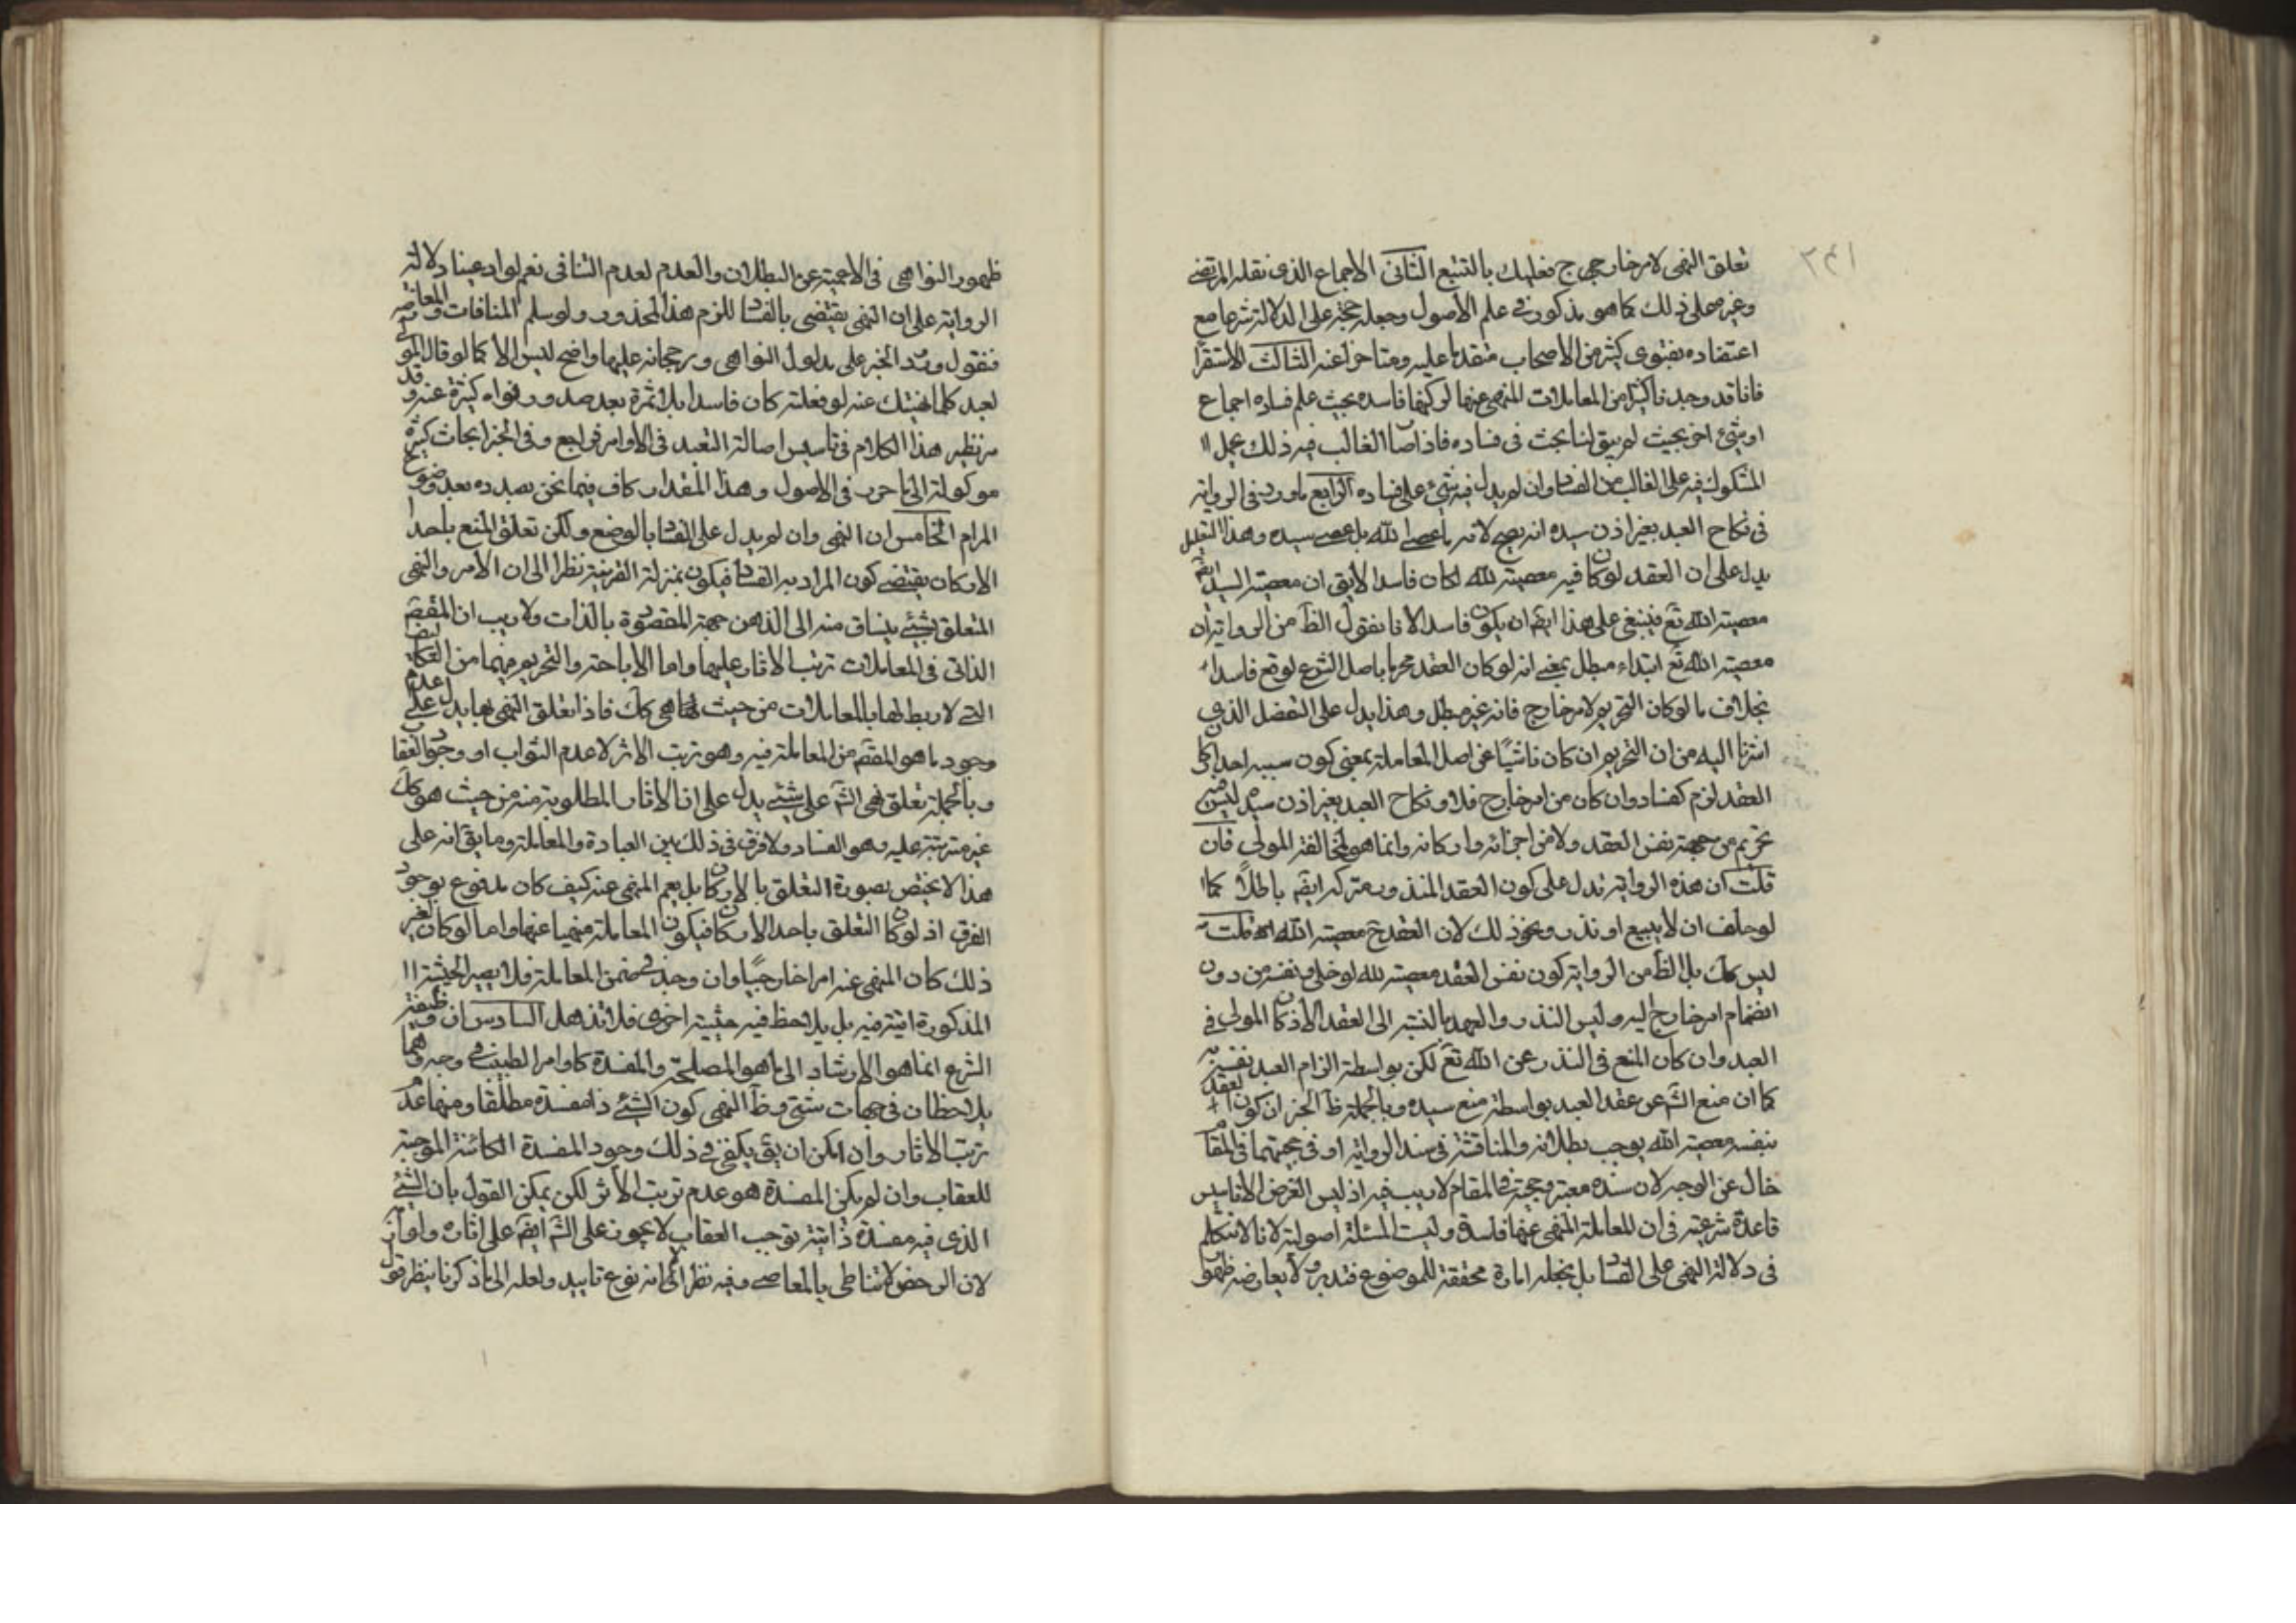 ٢٤١
تعلق النهى لامر خارجى ح فعليك بالتتبع الثانى الاجماع الذى نقله المرتضى
وغيره على ذلك كما هو مذكور فى علم الاصول وجعله حجة على الدلالة شرعا مع
اعتضاده بفتوى كثير من الاصحاب متقدما عليه ومتاخرا عنه الثالث الاستقرا
فانا قد وجدنا كثيرا من المعاملات المنهى عنها لوكنها فاسده بحيث علم فساده اجماع
او شئ اخر بحيث لم يبق لنا بحث فى فساده فاذا صا الغالب فيه ذلك يحمل
المشكوك فيه على الغالب من الفسا وان لم يدل فيه شئ على فساده الرابع ما ورد فى الرواية
فى نكاح العبد بغير اذن سيده انه يصح لانه ما عصى الله بل عصى سيده وهذا التعليل
يدل على ان العقد لو كان فيه معصية لله لكان فاسدا لا يق ان معصية السيد ايضا
معصية الله تع فينبغى على هذا ايض ان يكون فاسدا لانا نقول الظ من الرواية ان
معصية الله تع ابتداء مبطل بمعنى انه لو كان العقد محرما باصل الشرع لوقع فاسدا
بخلاف ما لو كان التحريم لامر خارج فانه غير مبطل وهذا يدل على التفصيل الذى
اشرنا اليه من ان التحريم ان كان ناشيًا عن اصل المعاملة بمعنى كون سببه احد اركا
العقد لزم كفساد وان كان من امر خارج فلا ونكاح العبد بغير اذن سيده ليس فيه
تحريم من جهة نفس العقد ولا من اجزائه واركانه وانما هو لمخالفة المولى فان
قلت ان هذه الرواية تدل على كون العقد المنذور تركه ايض باطلاً كما
لو حلف ان لا يبيع او نذر ونحو ذلك لان العقد ح معصية الله قلت
ليس كك بل الظ من الرواية كون نفس العقد معصية لله لو خلى ونفسه من دون
انضمام امر خارج اليه وليس النذر والعهد بالنسبة الى العقد الا كاذن المولى فى
العبد وان كان المنع فى النذر عن الله تع لكن بواسطة الزام العبد نفسه به
كما ان منع الش عن عقد العبد بواسطة منع سيده وبالجملة ظ الخبر ان كون العقد
بنفسه معصية الله يوجب بطلانه والمناقشة فى سند الرواية او فى حجيتها فى المقا
خال عن الوجه لان سنده معتبر وحجية فى المقام لا ريب فيه اذ ليس الغرض الا تاسيس
قاعدة شرعية فى ان المعاملة المنهى عنها فاسدة وليست المسئلة اصولية لانا لا نتكلم
فى دلالة النهى على الفسا بل نجعله امارة محققة للموضوع فتدبر ولا يعارضه ظهور
ظهور النواهى فى الاعمية عن البطلان والعدم لعدم التنافى نعم لو ادعينا دلالة
الرواية على ان النهى يقتضى بالفسا للزم هذا المحذور ولو سلم المنافات والمعارضة
فنقول ورود الخبر على مدلول النواهى ورجحانه عليها واضح ليس الا كما لو قال المولى
لعبد كلما نهيتك عنه لو فعلته كان فاسدا بلا ثمرة بعد صدور نواه كثيرة عنه وقد
مر نظير هذا الكلام فى تاسيس اصالة التعبد فى الاوامر فراجع وفى الخبر ابحاث كثيرة
موكولة الى ما حرر فى الاصول وهذا المقدار كاف فيما نحن بصدده بعد وضوح
المرام الخامس ان النهى وان لم يدل على الفسا بالوضع ولكن تعلق المنع باحد
الاركان يقتضى كون المراد به الفسا فيكون بمنزلة القرينة نظرا الى ان الامر والنهى
المتعلق بشئ ينساق منه الى الذهن جهة المقصودة بالذات ولا ريب ان المقصم
الذاتى فى المعاملات ترتب الاثار عليها واما الاباحة والتحريم منهما من التكاليف
التى لا ربط لها بالمعاملات من حيث انها هى كك فاذا تعلق النهى بها يدل على عدم
وجود ما هو المقصم من المعاملة فيه وهو ترتب الاثر لا عدم الثواب او وجود العقا
وبالجملة تعلق نهى الش على شئ يدل على ان الاثار المطلوبة منه من حيث هو كك
غير مترتبة عليه وهو الفساد ولا فرق فى ذلك بين العبادة والمعاملة وما يق انه على
هذا لا يختص بصورة التعلق بالاركان بل يعم المنهى عنه كيف كان مدفوع بوجود
الفرق اذ لو كان التعلق باحد الاركان فيكون المعاملة منهيا عنها واما لو كان لغير
ذلك كان المنهى عنه امرا خارجيًا وان وجد فى ضمن المعاملة فلا يصير الحيثية
المذكورة اتية فيه بل يلاحظ فيه حيثية اخرى فلا تذهل السادس ان وظيفة
الشرع انما هو الارشاد الى ما هو المصلحة والمفسدة كاوامر الطبيب فى وجه وهما
يلاحظان فى جهات شتى وظ النهى كون الشئ ذا مفسدة مطلقا ومنها عدم
ترتب الاثار وان امكن ان يق يكفى فى ذلك وجود المفسدة الكائنة الموجبة
للعقاب وان لم يكن المفسدة هو عدم ترتب الاثر لكن يمكن القول بان الشئ
الذى فيه مفسدة ذاتية توجب العقاب لا يجوز على الش ايض على اثاره
لان الرخص لا تناطى بالمعاصى وفيه نظر الا انه نوع تاييد ولعله الى ما ذكرنا ينظر قول